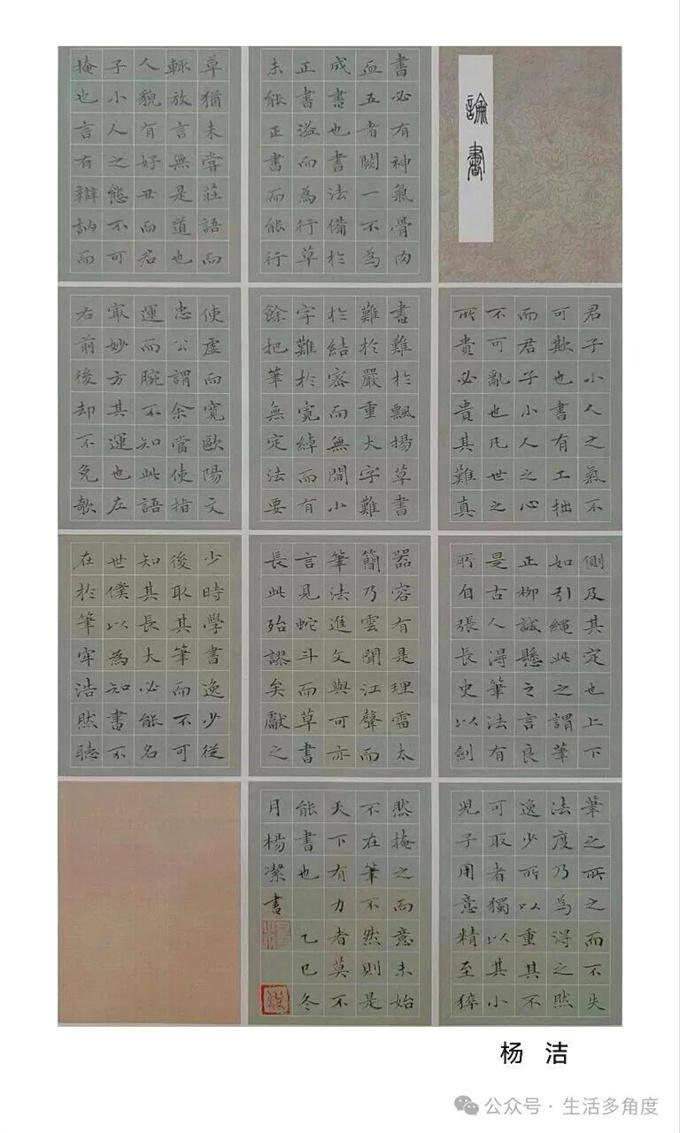 論書
書必有神氣骨肉
血五者闕一不為
成書也書法備於
正書溢而為行草
未能正書而能行
草猶未嘗莊語而
輒放言無是道也
人貌有好丑而君
子小人之態不可
掩也言有辯訥而
君子小人之氣不
可欺也書有工拙
而君子小人之心
不可亂也凡世之
所貴必貴其難真
書難於飄揚草書
難於嚴重大字難
於結密而無間小
字難於寬綽而有
餘把筆無定法要
使虛而寬歐陽文
忠公謂余當使指
運而腕不知此語
冣妙方其運也左
右前後却不免欹
側及其定也上下
如引繩此之謂筆
正柳誠懸之言良
是古人得筆法有
所自張長史以劍
器容有是理雷太
簡乃雲聞江聲而
筆法進文與可亦
言見蛇斗而草書
長此殆謬矣獻之
少時學書逸少從
後取其筆而不可
知其長大必能名
世僕以為知書不
在於筆牢浩然聽
筆之所之而不失
法度乃為得之然
逸少所以重其不
可取者獨以其小
兒子用意精至猝
然掩之而意未始
不在筆不然則是
天下有力者莫不
能書也 乙巳冬
月楊潔書
杨 洁
公众号 · 生活多角度